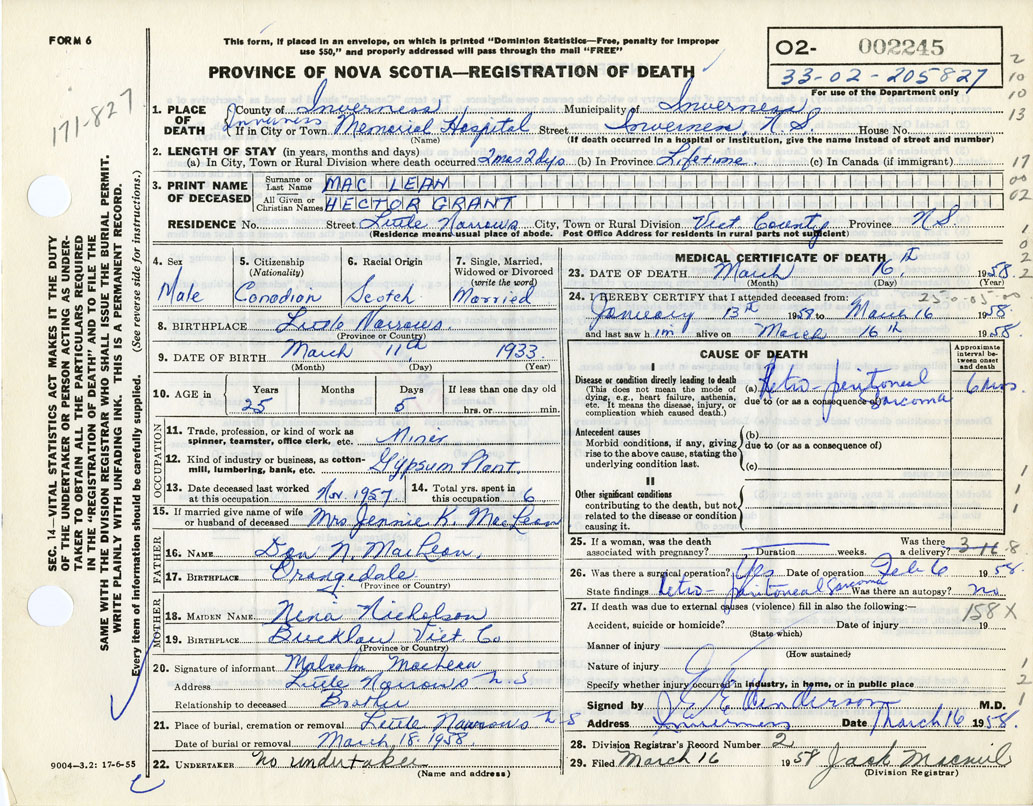 FORM 6
This form, if placed in an envelope, on which is printed "Dominion Statistics—Free, penalty for improper
use $50," and properly addressed will pass through the mail "FREE"
PROVINCE OF NOVA SCOTIA—REGISTRATION OF DEATH
O2- 002245
33-02-205827
For use of the Department only
171-827
2
10
10
13
17
00
02
1. PLACE OF DEATH County of Inverness Municipality of Inverness
If in City or Town Inverness Memorial Hospital Street Inverness, N.S. House No.
(Name) (If death occurred in a hospital or institution, give the name instead of street and number)
2. LENGTH OF STAY (in years, months and days)
(a) In City, Town or Rural Division where death occurred 2 mos 2 dys (b) In Province Lifetime (c) In Canada (if immigrant)
3. PRINT NAME OF DECEASED Surname or Last Name MAC LEAN
All Given or Christian Names HECTOR GRANT
RESIDENCE No. Street Little Narrows City, Town or Rural Division Vict County Province N.S.
(Residence means usual place of abode. Post Office Address for residents in rural parts not sufficient)
4. Sex Male
5. Citizenship (Nationality) Canadian
6. Racial Origin Scotch
7. Single, Married, Widowed or Divorced (write the word) Married
8. BIRTHPLACE Little Narrows
(Province or Country)
9. DATE OF BIRTH March 11th 1933
(Month) (Day) (Year)
10. AGE in Years 25 Months Days 5 If less than one day old hrs. or min.
OCCUPATION
11. Trade, profession, or kind of work as spinner, teamster, office clerk, etc. Miner
12. Kind of industry or business, as cotton-mill, lumbering, bank, etc. Gypsum Plant
13. Date deceased last worked at this occupation Nov. 1957
14. Total yrs. spent in this occupation 6
15. If married give name of wife or husband of deceased Mrs Jennie K. MacLean
FATHER
16. NAME Dan N. MacLean
17. BIRTHPLACE Orangedale
(Province or Country)
MOTHER
18. MAIDEN NAME Nina Nicholson
19. BIRTHPLACE Bucklaw Vict. Co
(Province or Country)
20. Signature of informant Malcolm MacLean
Address Little Narrows N-S
Relationship to deceased Brother
21. Place of burial, cremation or removal Little Narrows N-S
Date of burial or removal March 18. 1958
22. UNDERTAKER no undertaker
(Name and address)
MEDICAL CERTIFICATE OF DEATH
23. DATE OF DEATH March 16th 1958
(Month) (Day) (Year)
24. I HEREBY CERTIFY that I attended deceased from:
January 13th 1958 to March 16 1958
and last saw him alive on March 16th 1958
CAUSE OF DEATH
Approximate interval between onset and death
I
Disease or condition directly leading to death
(This does not mean the mode of dying, e.g., heart failure, asthenia, etc. It means the disease, injury, or complication which caused death.)
(a) Retro-peritoneal Sarcoma 6 mos.
due to (or as a consequence of)
Antecedent causes
Morbid conditions, if any, giving rise to the above cause, stating the underlying condition last.
(b)
due to (or as a consequence of)
(c)
II
Other significant conditions contributing to the death, but not related to the disease or condition causing it.
25. If a woman, was the death associated with pregnancy? Duration weeks. Was there a delivery?
26. Was there a surgical operation? Yes Date of operation Feb 6 1958
State findings Retro-peritoneal Sarcoma Was there an autopsy? no
27. If death was due to external causes (violence) fill in also the following:— 158X
Accident, suicide or homicide? Date of injury 19
(State which)
Manner of injury
(How sustained)
Nature of injury
Specify whether injury occurred in industry, in home, or in public place
Signed by J. E. Henderson M.D.
Address Inverness Date March 16 1958
28. Division Registrar's Record Number 2
29. Filed March 16 1958 Jack Macneil
(Division Registrar)
SEC. 14—VITAL STATISTICS ACT MAKES IT THE DUTY
OF THE UNDERTAKER OR PERSON ACTING AS UNDER-
TAKER TO OBTAIN ALL THE PARTICULARS REQUIRED
IN THE "REGISTRATION OF DEATH" AND TO FILE THE
SAME WITH THE DIVISION REGISTRAR WHO SHALL ISSUE THE BURIAL PERMIT.
WRITE PLAINLY WITH UNFADING INK. THIS IS A PERMANENT RECORD.
Every item of information should be carefully supplied. (See reverse side for instructions.)
9004—3.2: 17-6-55